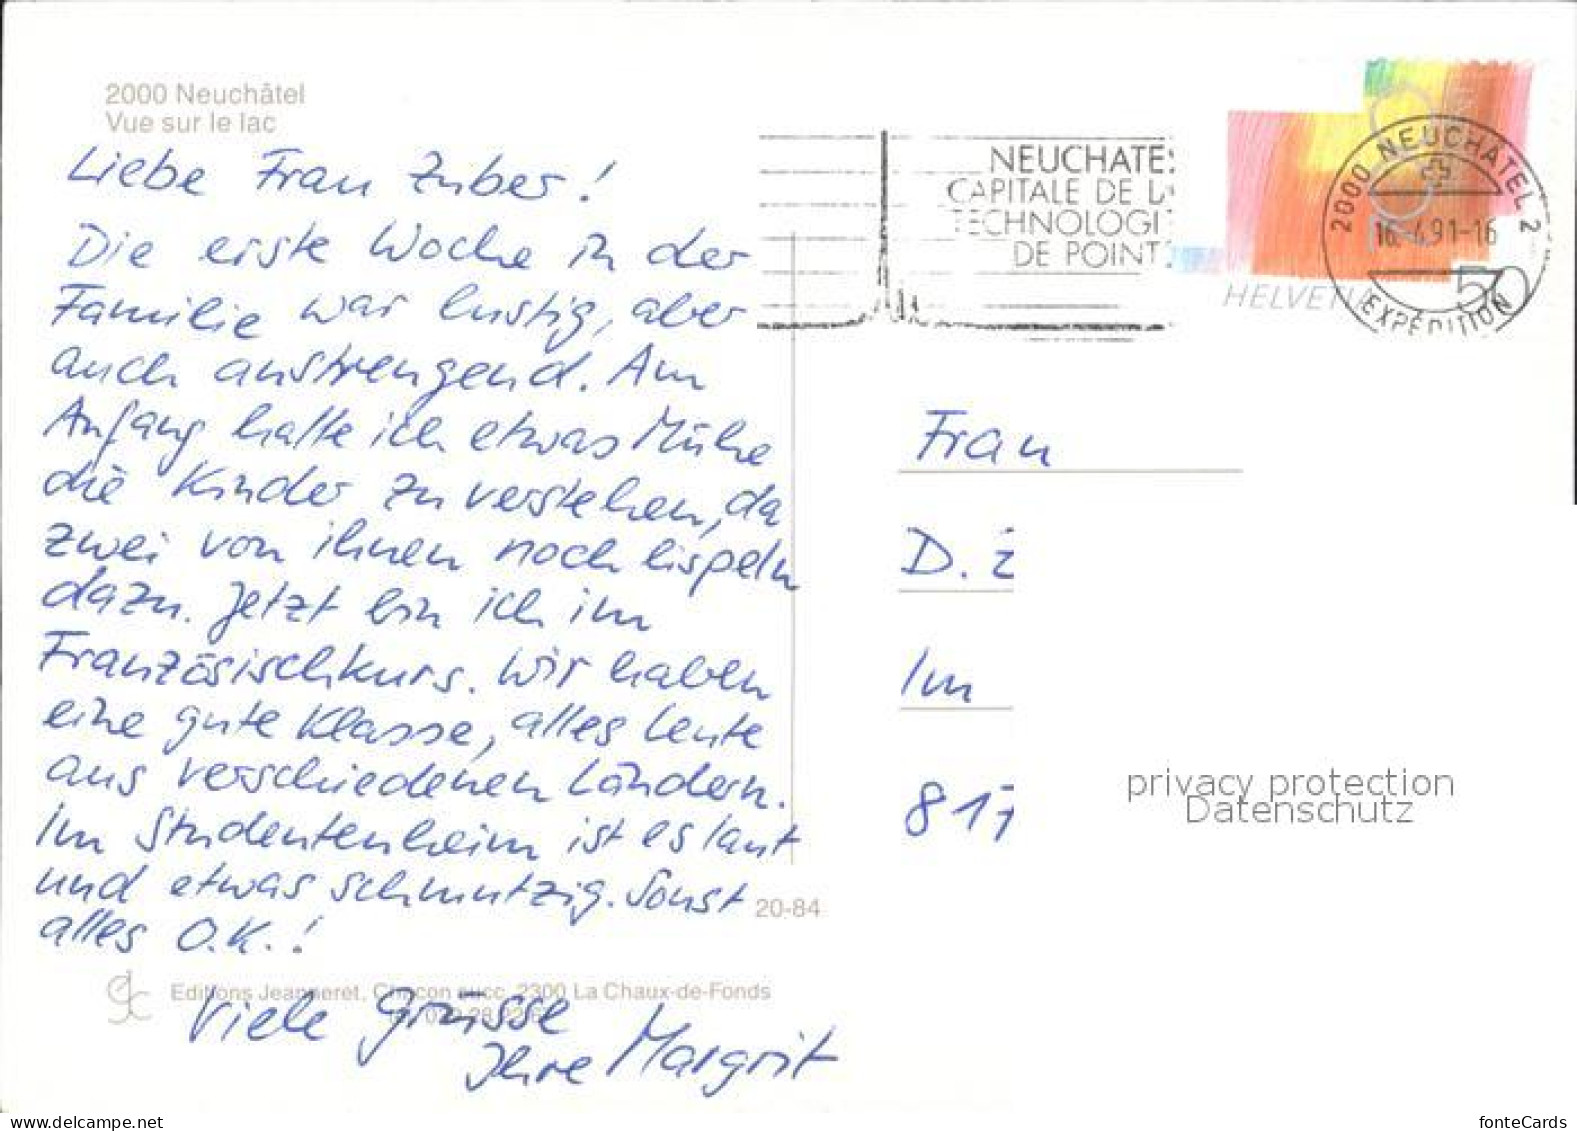 2000 Neuchâtel
Vue sur le lac
Liebe Frau Zuber!
Die erste Woche in der
Familie war lustig, aber
auch anstrengend. Am
Anfang hatte ich etwas Mühe
die Kinder zu verstehen, da
zwei von ihnen noch lispeln
dazu. Jetzt bin ich im
Französischkurs. Wir haben
eine gute Klasse, alles Leute
aus verschiedenen Ländern.
Im Studentenheim ist es laut
und etwas schmutzig. Sonst
alles O.K.!
Viele Grüsse
Ihre Margrit
20-84
Editions Jeanneret, Chacon succ. 2300 La Chaux-de-Fonds
NEUCHATE
CAPITALE DE L
TECHNOLOGI
DE POINT
HELVETI
50
2000 NEUCHÂTEL 2
16.4.91-16
EXPÉDITION
Frau
D. Z
Im
817
privacy protection
Datenschutz
www.delcampe.net
fonteCards